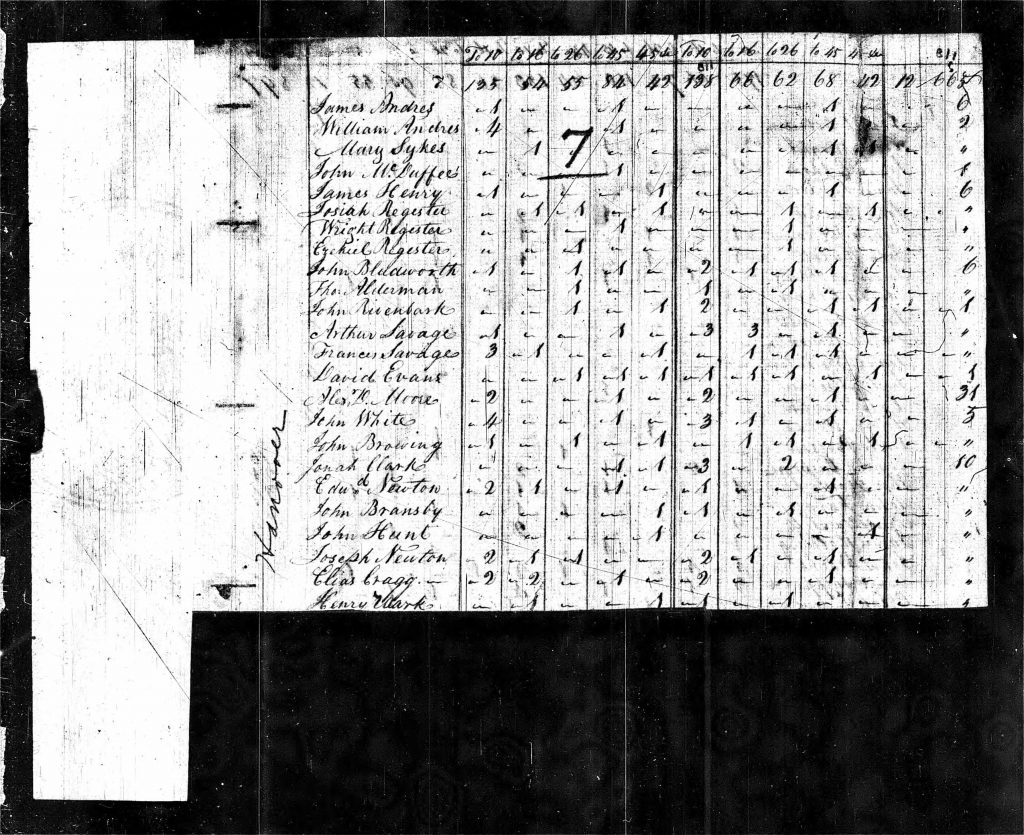 To 10 to 16 to 26 to 45 45 &c To 10 to 16 to 26 to 45 &c 811
125 54 55 54 42 128 66 62 68 42 12
James Andres 1 1 1 6
William Andres 4 1 1 2
Mary Sykes 1 1 "
7
John McDuffee 1 1
James Henry 1 1 1 6
Josiah Regester 1 1 1 1 1 "
Wright Regester 1 1 "
Ezekiel Regester 1 1 "
John Bludworth 1 1 1 2 1 1 1 6
Thos Alderman 1 1 1 "
John Rivenbark 1 1 2 1 1
Arthur Savage 1 1 3 3 1 "
Frances Savage 3 1 1 1 1 1 "
David Evans 1 1 1 1 1 1 1 1
Alexr D. Moore 2 1 2 1 31
John White 4 1 3 1 1
John Browing 1 1 1 1 1 1 "
Jonah Clark 1 1 3 2 10
Edwd Newton 2 1 1 1 1 "
John Bransby 1 1 1 1 "
John Hunt 1 1 "
Joseph Newton 2 1 1 2 1 1 "
Elias Cragg 2 2 1 2 1 "
Henry Clark 1 1 1 1 1 1
Hanover